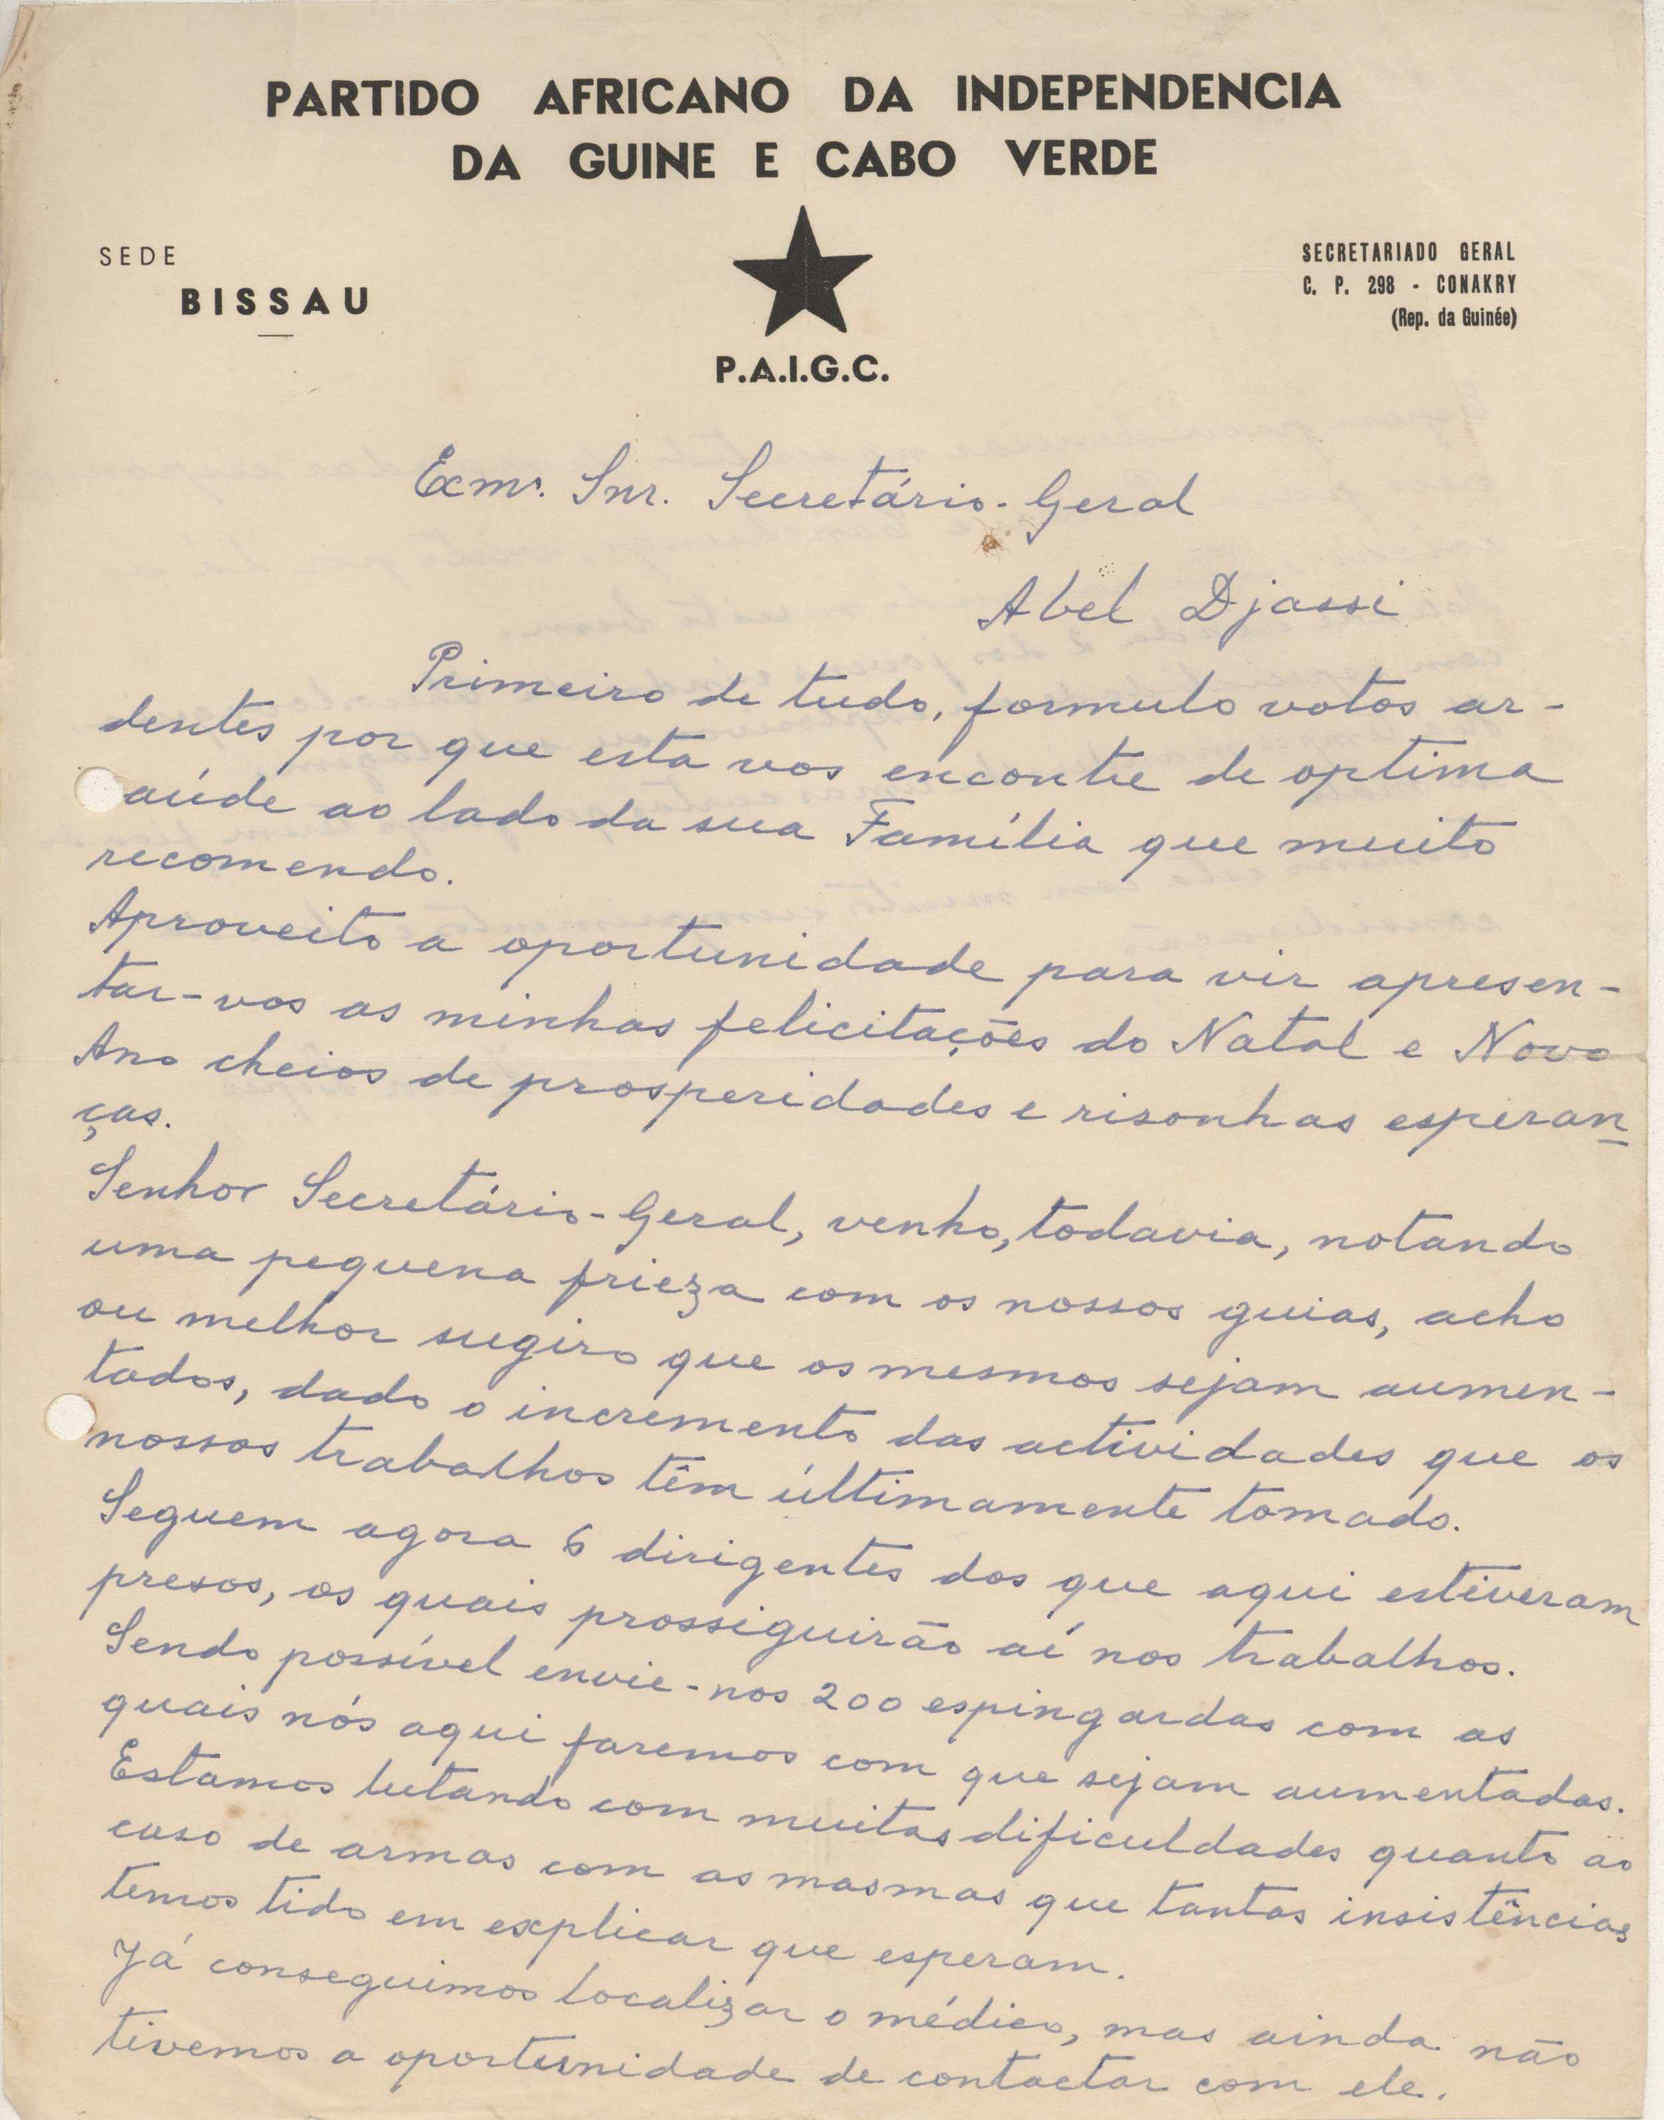 PARTIDO AFRICANO DA INDEPENDENCIA
DA GUINE E CABO VERDE
SEDE
BISSAU
P.A.I.G.C.
SECRETARIADO GERAL
C. P. 298 - CONAKRY
(Rep. da Guinée)
Exmº. Snr. Secretário-Geral
Abel Djassi
Primeiro de tudo, formulo votos ar-
dentes por que esta vos encontre de optima
aúde ao lado da sua Família que muito
recomendo.
Aproveito a oportunidade para vir apresen-
tar-vos as minhas felicitações do Natal e Novo
Ano cheios de prosperidades e risonhas esperan-
ças.
Senhor Secretário-Geral, venho, todavia, notando
uma pequena frieza com os nossos guias, acho
ou melhor sugiro que os mesmos sejam aumen-
tados, dado o incremento das actividades que os
nossos trabalhos têm últimamente tomado.
Seguem agora 6 dirigentes dos que aqui estiveram
presos, os quais prosseguirão aí nos trabalhos.
Sendo possível envie-nos 200 espingardas com as
quais nós aqui faremos com que sejam aumentadas.
Estamos lutando com muitas dificuldades quanto ao
caso de armas com as masmas que tantas insistências
temos tido em explicar que esperam.
Já conseguimos localizar o médico, mas ainda não
tivemos a oportunidade de contactar com ele.